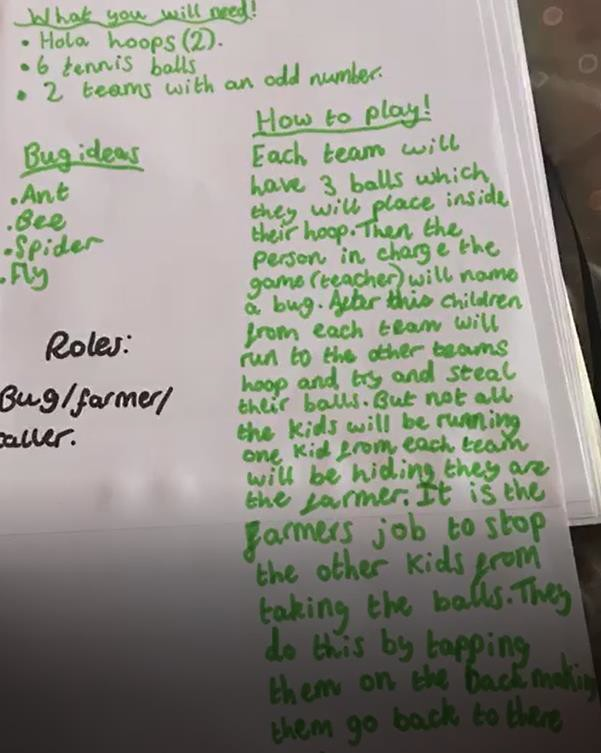 What you will need!
• Hola hoops (2).
• 6 tennis balls
• 2 teams with an odd number.
Bug ideas
• Ant
• Bee
• Spider
• Fly
Roles:
Bug/farmer/
caller.
How to play!
Each team will
have 3 balls which
they will place inside
their hoop. Then the
person in charge the
game (teacher) will name
a bug. After this children
from each team will
run to the other teams
hoop and try and steal
their balls. But not all
the kids will be running
one kid from each team
will be hiding they are
the farmer. It is the
farmers job to stop
the other kids from
taking the balls. They
do this by tapping
them on the back making
them go back to there